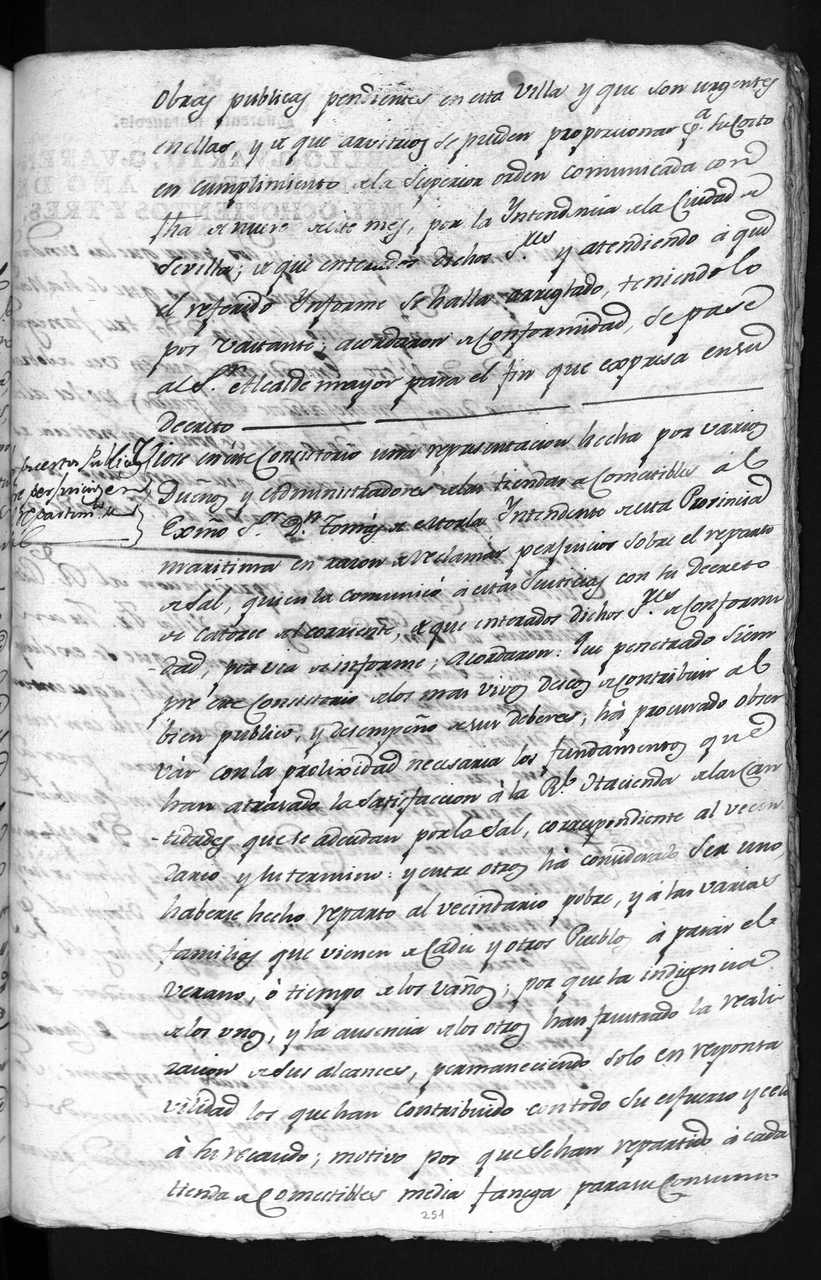 Obras publicas pendientes en esta Villa y que son urgentes
en ellas y de que arvitrios se pueden proporcionar p.ª su Costo
en cumplimiento de la Superior orden comunicada con
fha de nueve de este mes, por la Yntendencia de la Ciudad de
Sevilla; de que enterados dichos S.res y atendiendo á que
el referido Ynforme se halla arreglado, teniendolo
por bastante; acordaron de Conformidad, se pase
al S.or Alcalde mayor para el fin que expresa en su
Decreto
Viose en este Consistorio una representacion hecha por varios
Dueños y Administradores de las tiendas de Comestibles á el
Exmõ S.or D.n Tomás de Yntendente de esta Provincia
maritima en razon de reclamar perjuicios sobre el reparto
de Sal, quien la comunicó á estas Justicias con su Decreto
de Catorce del corriente, de que enterados dichos S.res de Conformi
dad, por via de informe; Acordaron: Que penetrado Siem
pre este Consistorio de los mas vivos deseos de Contribuir á el
bien publico, y desempeño de sus deberes; há procurado obser
var con la prolixidad necesaria los fundamentos que
han atrasado la Satisfacion á la R.l Hacienda de las Can
tidades que se adeudan por la Sal, correspondiente al vecin
dario y su termino: y entre otros há considerado Ser uno
haberse hecho reparto al vecindario pobre, y á las varias
familias que vienen de Cadiz y otros Pueblos á pasar el
Verano, ó tiempo de los vaños; por que la indigencia
de los unos, y la ausencia de los otros han frustrado la reali
zacion de Sus alcances, permaneciendo solo en responsa
vilidad los que han Contribuido con todo Su esfuerzo y celo
á su recaudo; motivo por que se han repartido á cada
tienda de Comestibles media fanega para su Consumo
puestos publicos
perjuicios en
Repartim.to de
251